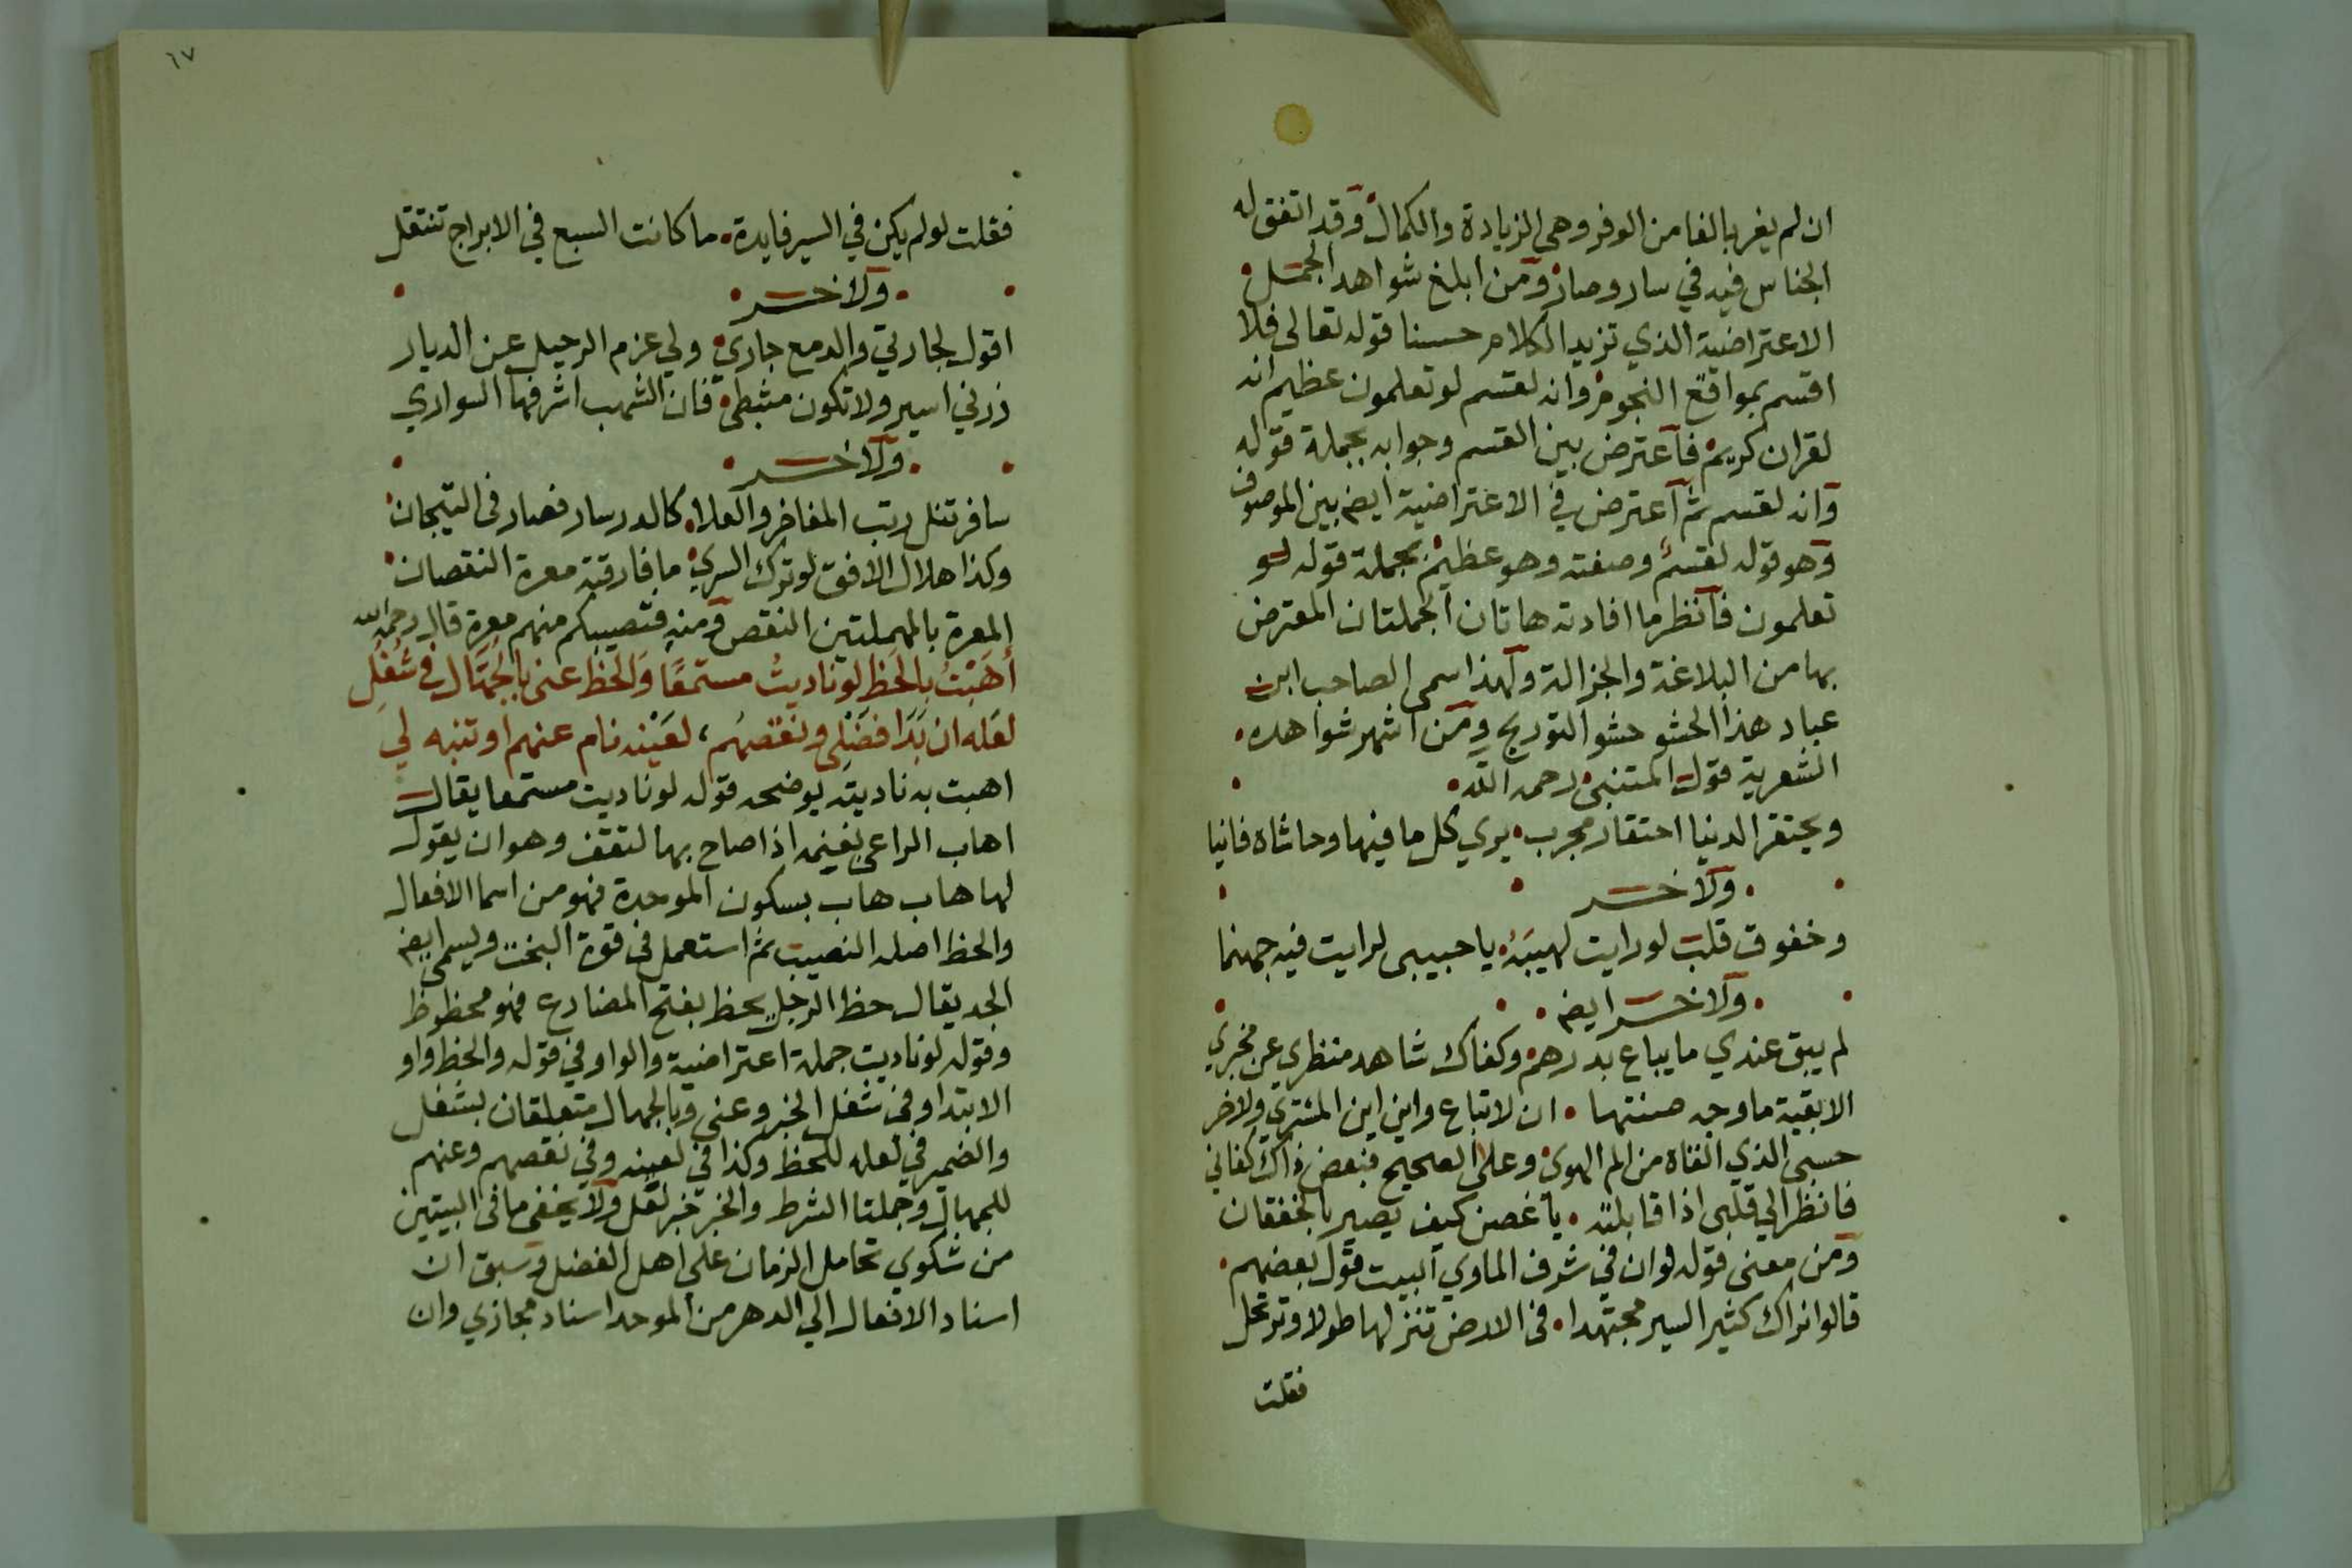 ان لم يغر بالغا من الوفر وهي الزيادة والكمال وقد اتفق له
الجناس فيه في سار وصار ومن ابلغ شواهد الجمل
الاعتراضية الذي تزيد الكلام حسنا قوله تعالى فلا
اقسم بمواقع النجوم وانه لقسم لو تعلمون عظيم انه
لقران كريم فاعترض بين القسم وجوابه بجملة قوله
وانه لقسم ثم اعترض في الاعتراضية ايضا بين الموصوف
وهو قوله لقسم وصفته وهو عظيم بجملة قوله لو
تعلمون فانظر ما افادته هاتان الجملتان المعترض
بها من البلاغة والجزالة ولهذا سمى الصاحب ابن
عباد هذا الحشو حشو التوريج ومن اشهر شواهده
الشعرية قول المتنبي رحمه الله
ويحتقر الدنيا احتقار مجرب يري كل ما فيها وحاشاه فانيا
ولاخر
وخفوق قلب لو رايت لهيبه يا حبيبي لرايت فيه جهنما
ولاخر ايضا
لم يبق عندي ما يباع بدرهم وكفاك شاهد منظري عن مخبري
الا بقية ما وجه صنتها ان لا تباع واين اين المشتري ولاخر
حسبي الذي القاه من الم الهوى وعلى الصحيح فبعض ذاك كفاني
فانظر الي قلبي اذا قابلته يا غصن كيف يصير بالخفقان
ومن معنى قوله لو ان في شرف الماوي البيت قول بعضهم
قالوا نراك كثير السير مجتهدا في الارض تنزلها طولا وترتحل
فقلت
٦٧
فقلت لو لم يكن في السير فايدة ما كانت السبع في الابراج تنتقل
ولاخر
اقول لجارتي والدمع جاري ولي عزم الرحيل عن الديار
ذرني اسير ولا تكون مثبطي فان الشهب اشرفها السواري
ولاخر
سافر تنل رتب المفاخر والعلا كالدر سار فصار في التيجان
وكذا هلال الافق لو ترك السري ما فارقته معرة النقصان
المعرة بالمهملتين النقص ومنه فتصيبكم منهم معرة قال رحمه الله
اهبت بالحظ لو ناديت مستمعا والحظ عنى بالجهال في شغل
لعله ان بدا فضلى ونقصهم لعينه نام عنهم او تنبه لي
اهبت به ناديته يوضحه قوله لو ناديت مستمعا يقال
اهاب الراعي بغنمه اذا صاح بها لتقف وهو ان يقول
لها هاب هاب بسكون الموحدة فهو من اسما الافعال
والحظ اصله النصيب ثم استعمل في قوة البخت ويسمى ايضا
الجد يقال حظ الرجل يحظ بفتح المضارع فهو محظوظ
وقوله لو ناديت جملة اعتراضية والواو في قوله والحظ واو
الابتدا وفي شغل الخبر وعني وبالجهال متعلقان بشغل
والضمير في لعله للحظ وكذا في لعينه وفي نقصهم وعنهم
للجهال وجملتا الشرط والخبر خبر لعل ولا يخفى ما في البيتين
من شكوي تحامل الزمان على اهل الفضل وسبق ان
اسناد الافعال الي الدهر من الموحد اسناد مجازي وان